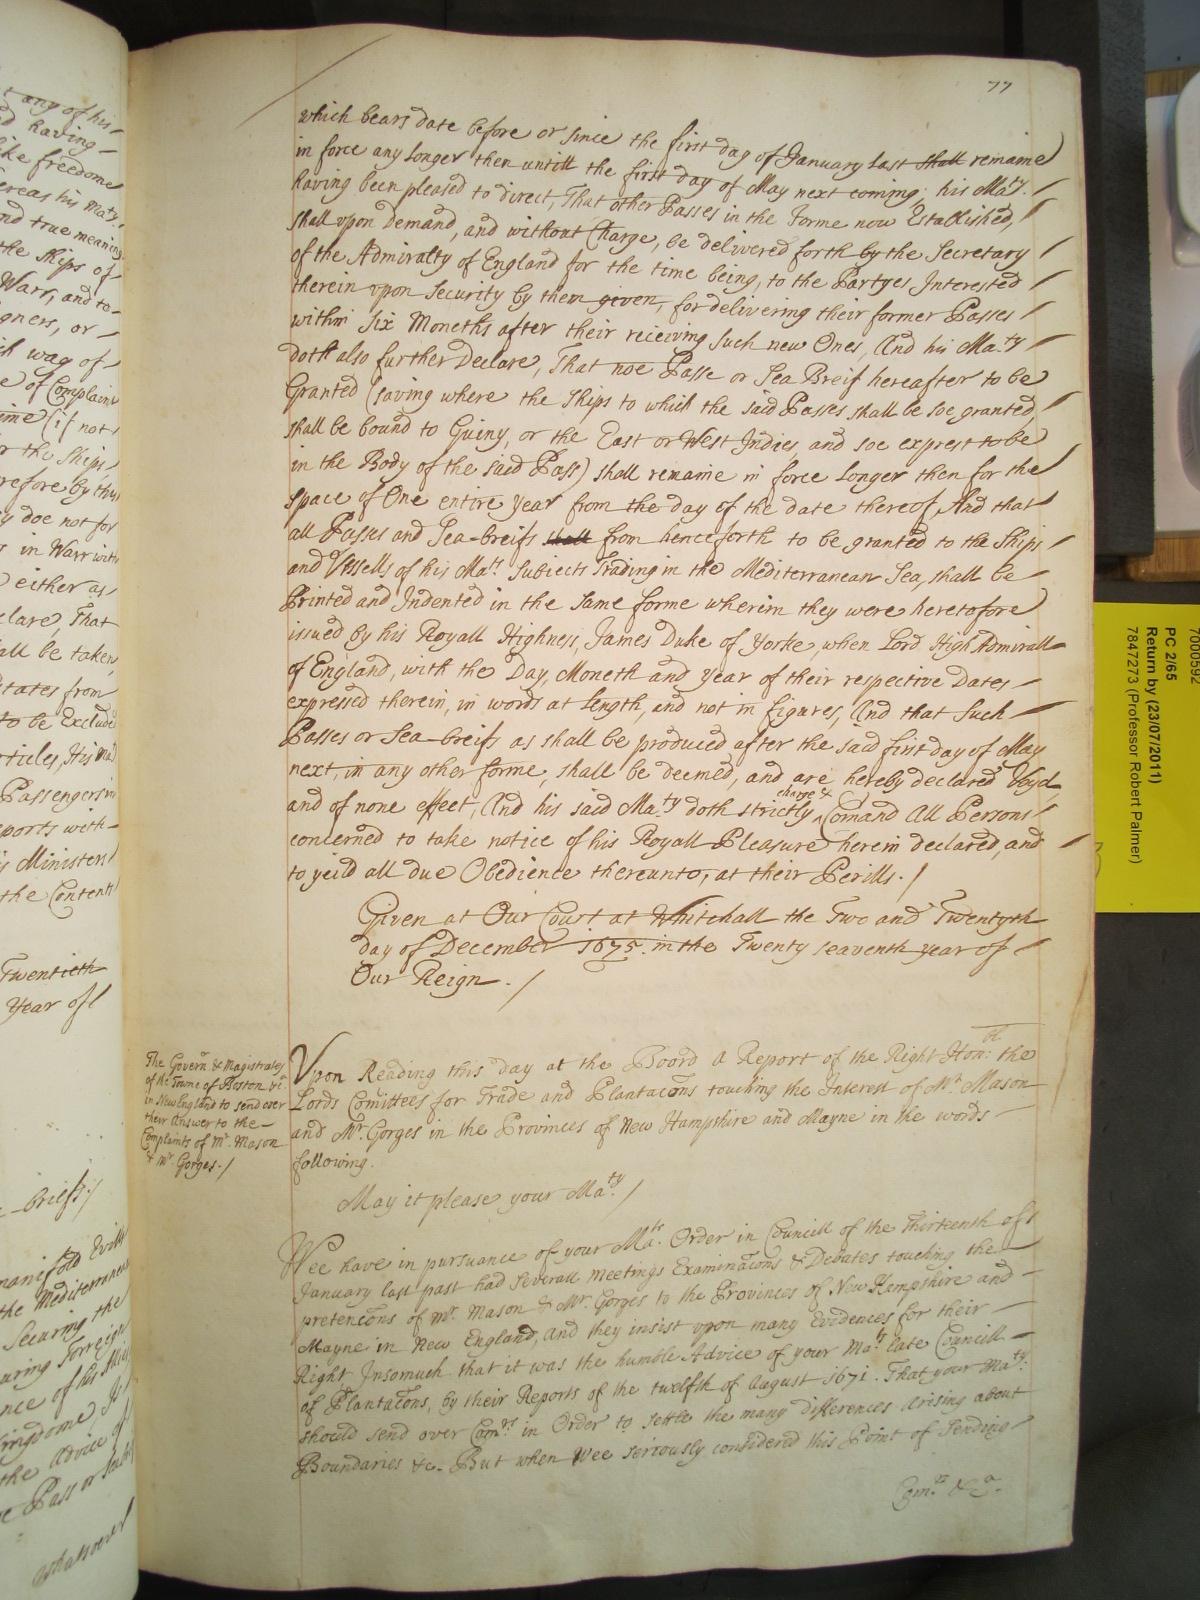 t any of his
d having
ike freedome
ereas his Maty
nd true meaning
the Ships of
Warr, and to
gners, or
ch way of
e of Complaint
ime (if not
r the Ships
refore by this
y doe not for
s in Warr with
either as
clare, That
all be taken
states from
to be Exclude
rticles, His Ma
Passengers in
eports with
s Ministers
the Contents
Twentieth
Year of
Briefs./
manifold Evills
the Mediterranean
Securing the
Forreign
nce of his
Kingdome, Is
the advice of
e Pass or
whatsoever
77
which bears date before or since the first day of January last shall remaine
in force any longer then untill the first day of May next coming, his Maty.
having been pleased to direct, That other Passes in the Forme now Established,
shall upon Demand, and without Charge, be delivered forth by the Secretary
of the Admiralty of England for the time being, to the Partyes Interested
therein upon Security by them given, for delivering their former Passes
within Six Moneths after their receiving Such new Ones, And his Ma.ty
doth also further Declare, That noe Passe or Sea Breif hereafter to be
Granted (saving where the Ships to which the said Passes shall be soe granted,
shall be bound to Guiny, or the East or West Indies, and soe exprest to be
in the Body of the said Pass) shall remaine in force longer then for the
space of One entire year from the day of the date thereof, And that
all Passes and Sea-breifs shall from henceforth to be granted to the Ships
and Vessells of his Mats. Subiects Trading in the Mediterranean Sea, shall be
Printed and Indented in the same forme wherein they were heretofore
issued by his Royall Highness, James Duke of Yorke, when Lord High Admirall
of England, with the Day, Moneth and year of their respective Dates
expressed therein, in words at length, and not in figures, And that Such
Passes or Sea-breifs as shall be produced after the said first day of May
next, in any other forme, shall be deemed, and are hereby declared Voyd,
and of none effect, And his said Ma.ty doth strictly charge & Comand All Persons
concerned to take notice of his Royall Pleasure herein declared, and
to yeild all due Obedience thereunto, at their Perills./
Given at Our Court at Whitehall the Two and Twentyth
day of December 1675. in the Twenty seaventh year of
Our Reign./
The Governr. & Magistrates
of the Towne of Boston
in New England to send over
their Answer to the
Complaints of Mr. Mason
& Mr. Gorges./
Upon Reading this day at the Board a Report of the Right Hon:ble the
Lords Comittees for Trade and Plantacons touching the Interest of Mr. Mason
and Mr. Gorges in the Provinces of New Hampshire and Mayne in the words
following.
May it please your Ma.ty/
Wee have in pursuance of your Mats. Order in Councill of the Thirteenth of
January last past had Severall meetings Examinacons & Debates touching the
pretencons of Mr. Mason & Mr. Gorges to the Provinces of New Hampshire and
Mayne in New England, and they insist upon many Evidences for their
Right, Insomuch that it was the humble Advice of your Mats late Councill
of Plantacons, by their Reports of the twelfth of August 1671. That your Maty.
should send over Comrs. in Order to settle the many differences arising about
Boundaries &c. But when Wee seriously considered this Point of Sending
Comrs. &ca.
7000592
PC 2/65
Return by (23/07/2011)
7847273 (Professor Robert Palmer)